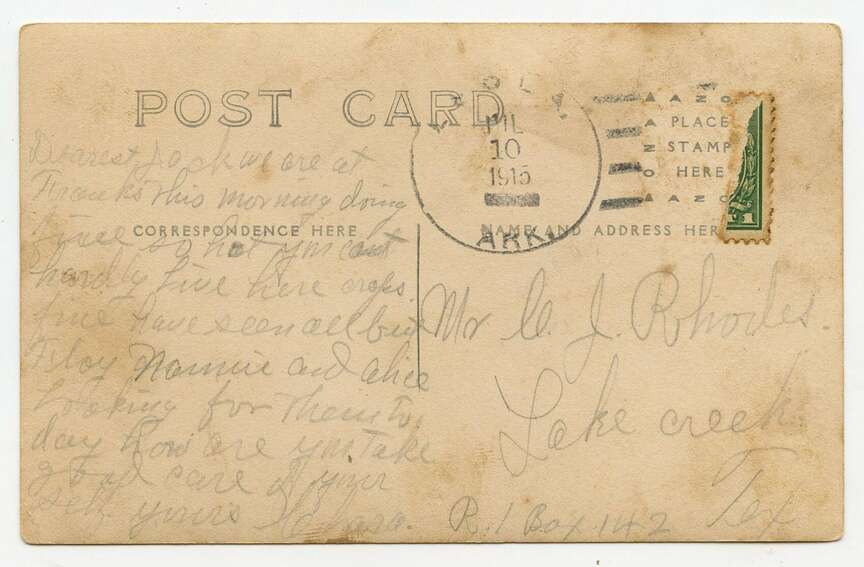 POST CARD
JUL
10
1915
ARK.
AZO
PLACE
STAMP
HERE
AZO
1
CORRESPONDENCE HERE
NAME AND ADDRESS HERE
Dearest Jack we are at
Franks this morning doing
fine so hot you cant
hardly live here crops
fine have seen all but
Floy Nannie and alice
Looking for them to
day how are you take
good care of your
self. yours Clara.
Mr C. J. Rhodes.
Lake creek
Tex
R. 1 Box 142